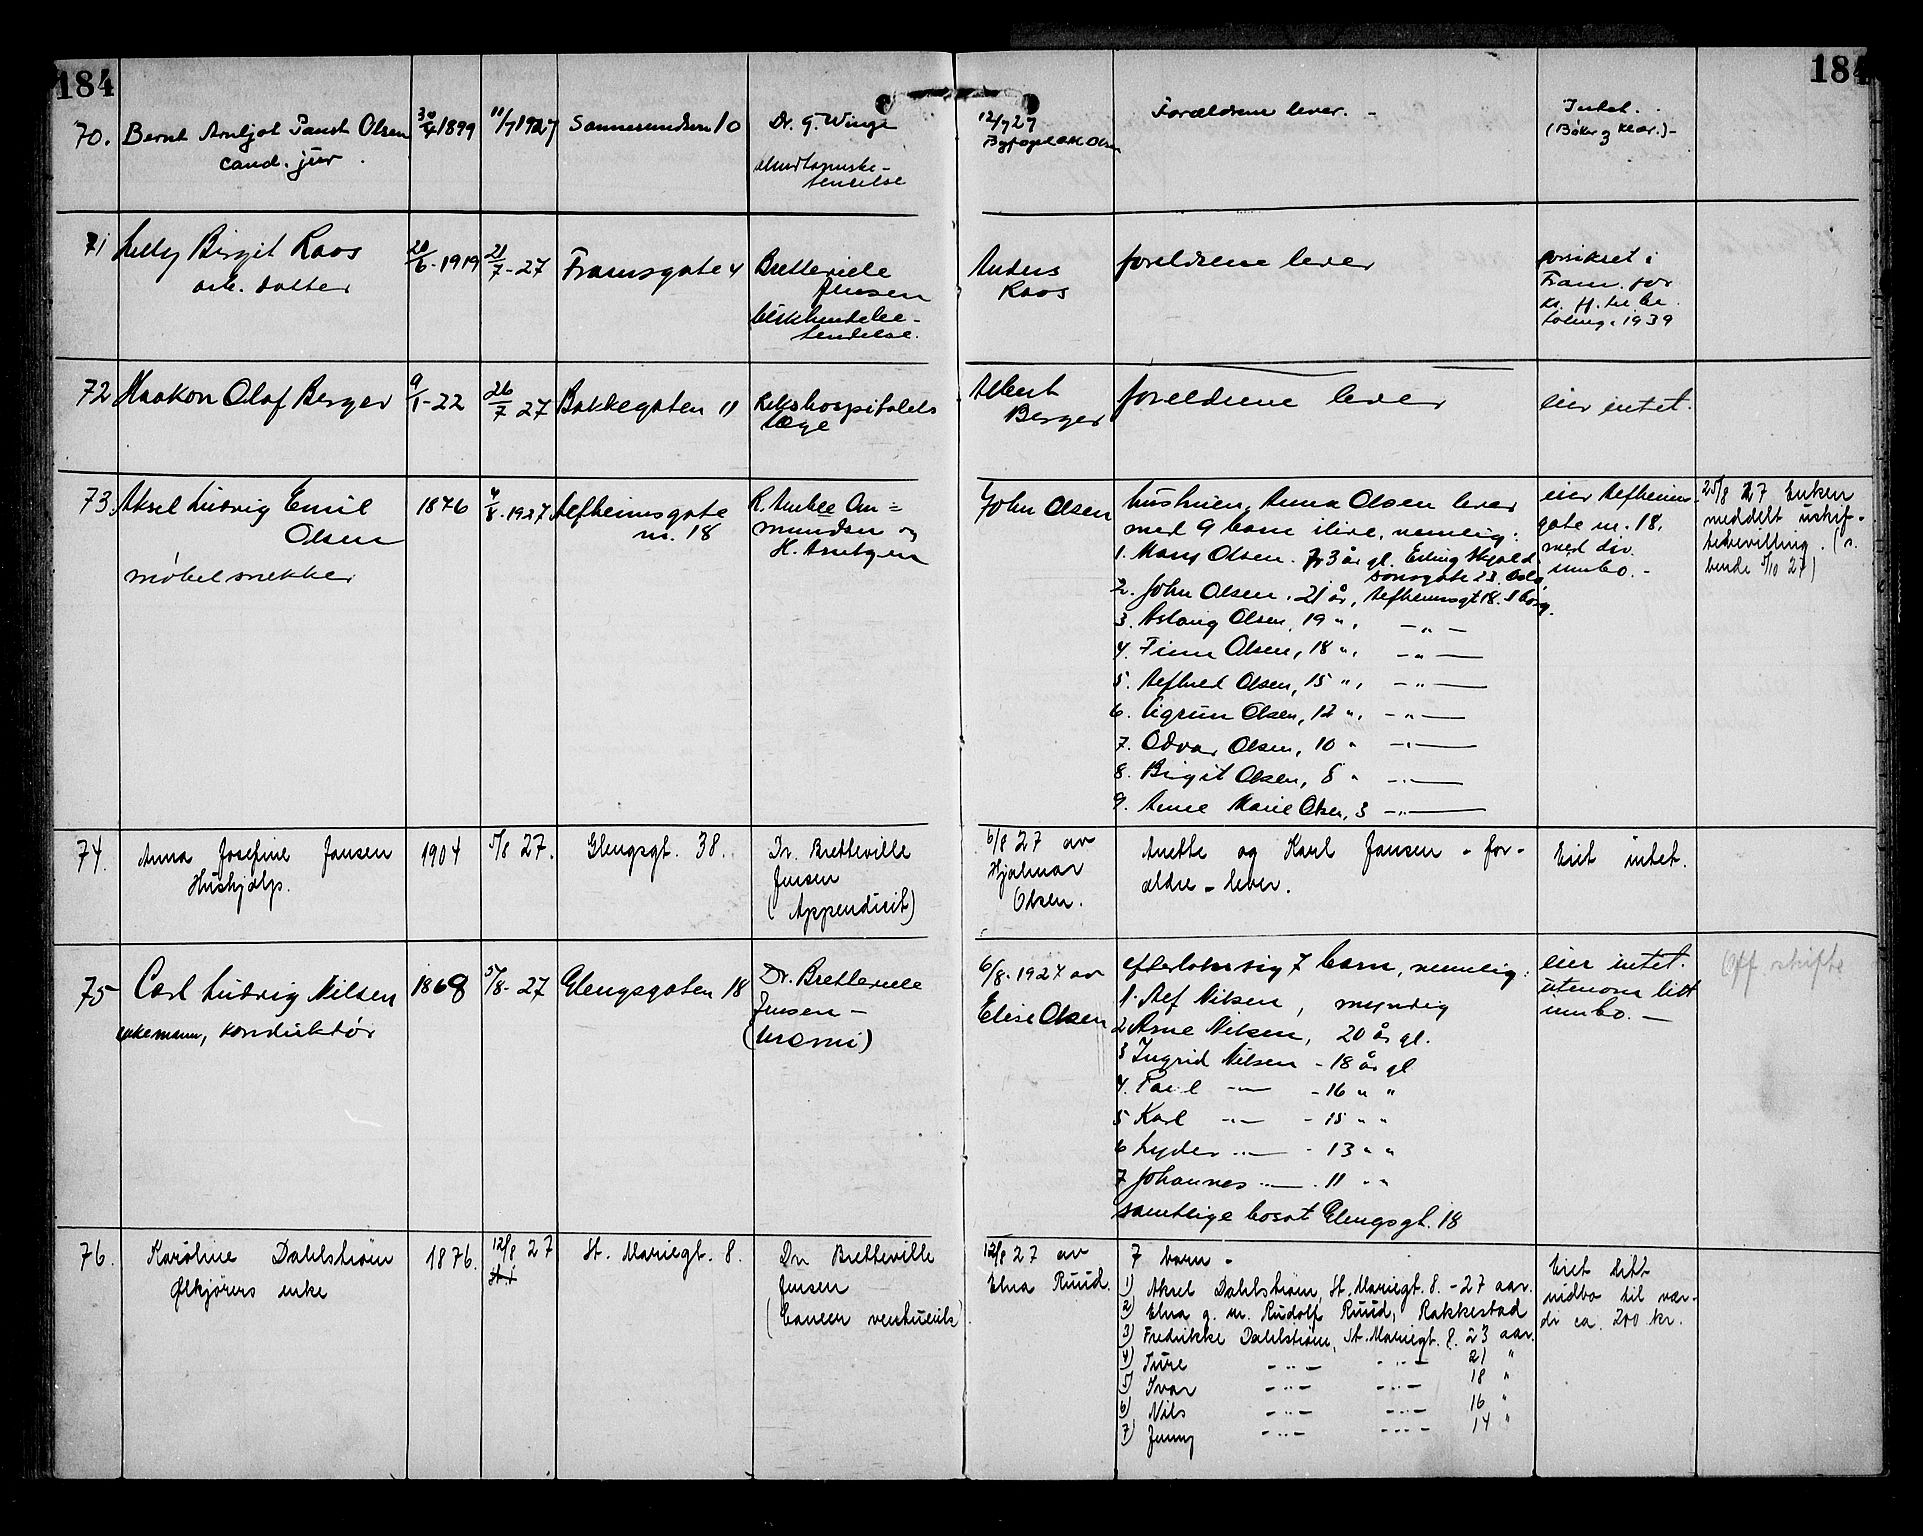 184
184
70. Bernt Arnljot Olsen 30/4 1899 11/7 1927 10 Dr. G. Winge 12/7 27 Forældrene lever. - Intet.
cand. jur. Olsen (Bøker og klær.)-
71 Lelly Birgit Raos 20/6-1919 21/7-27 Framsgate 4 Bretteville Anders foreldrene lever forsikret i
arb. datter Jensen Raos Fram for
kr.
1939
72 Haakon Olaf Berger 9/1-22 26/7 27 Bakkegaten 11 Rikshospitalets Albert foreldrene lever eier intet.
læge Berger
73. Aksel Ludvig Emil 1876 4/8-1927 Alfheimsgate R. Amble Om= John Olsen hustruen, Anna Olsen lever eier Alfheims- 25/8 27 Enken
Olsen nr. 18 mundsen og med 9 barn ilive, nemlig: gate nr. 18. meddelt uskif-
møbelsnekker H. Arntzen 1. Mary Olsen. 23 år gl. Erling Skjald med div. tebevilling.
sonsgate 23. Oslo innbo. -
2. John Olsen. 21 år, Alfheimsgt 18. S borg.
3. Aslaug Olsen, 19 ", -"-
4. Finn Olsen, 18 ", -"-
5. Alfhild Olsen, 15 ", -"-
6. Sigrun Olsen, 12 ", -"-
7. Odvar Olsen, 10 " -"-
8. Birgit Olsen, 8 " -"-
9. Anne Marie Olsen, 3 -"-
74. Anna Josefine Jansen 1904 5/8 27. Glengsgt. 38. Dr. Bretteville 6/8 27 av Anette og Karl Jansen - for- Eiet intet.
Hushjelp. Jensen Hjalmar ældre - lever.
(Appendicit) Olsen.
75 Carl Ludvig Nilsen 1868 5/8-27 Glengsgaten 18 Dr. Bretteville 6/8-1927 av efterlater sig 7 barn, nemlig: eier intet. Off skifte
enkemann, konduktør Jensen - Elise Olsen 1. Alf Nilsen, myndig utenom litt
(Uremi) 2 Arne Nilsen, 20 år gl. innbo. -
3 Ingrid Nilsen - 18 år gl
4. Paul -"- - 16 " "
5 Karl -"- - 15 " "
6 Lyder -"- - 13 " "
7 Johannes -"- - 11 " "
samtlige bosat Glengsgt. 18
76. Karoline Dahlstrøm 1876. 12/8 27 St. Mariegt. 8. Dr Bretteville 12/8 27 av 7 barn - Eiet litt
Ølkjørers enke Jensen Elna Ruud. 1) Aksel Dahlstrøm, St. Mariegt. 8. - 27 aar. indbo til vær-
(Cancer ventriculi) 2) Elna g. m. Rudolf Ruud, Rakkestad di ca. 200 kr.
3) Fredrikke Dahlstrøm, St. Mariegt. 8. 23 aar.
4) Ture -"- -"- 21 "
5) Ivar -"- -"- 18 "
6) Nils -"- -"- 16 "
7) Jenny -"- -"- 14 "